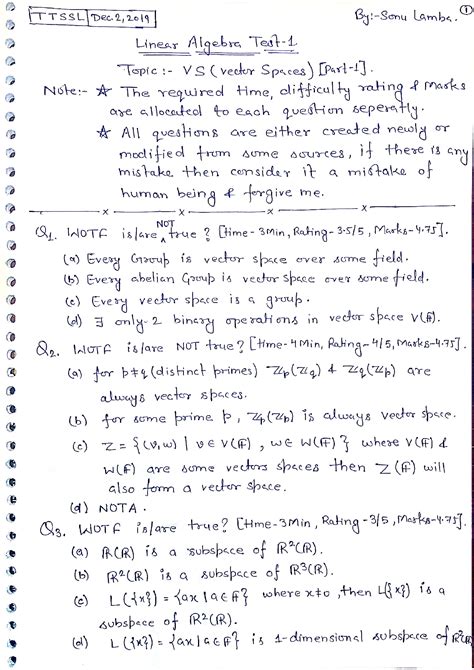 TTSSL Dec 2, 2019 By:- Sonu Lamba. 1
Linear Algebra Test-1
Topic :- VS (vector Spaces) [Part-1].
Note:- ☆ The required time, difficulty rating & Marks
are allocated to each question seperatly.
☆ All questions are either created newly or
modified from some sources, if there is any
mistake then consider it a mistake of
human being & forgive me.
Q1. WOTF is/are NOT true? [time-3Min, Rating-3.5/5, Marks-4.75].
(a) Every Group is vector space over some field.
(b) Every abelian Group is vector space over some field.
(c) Every vector space is a group.
(d) ∃ only-2 binary operations in vector space V(F).
Q2. WOTF is/are NOT true? [time-4Min, Rating-4/5, Marks-4.75]
(a) for p≠q (distinct primes) Zp(Zq) & Zq(Zp) are
always vector spaces.
(b) for some prime p, Zp(Zp) is always vector space.
(c) Z = {(v,w) | v∈V(F), w∈W(F)} where V(F) &
W(F) are some vectors spaces then Z(F) will
also form a vector space.
(d) NOTA.
Q3. WOTF is/are true? [time-3Min, Rating-3/5, Marks-4.75].
(a) R(R) is a subspace of R²(R).
(b) R²(R) is a subspace of R³(R).
(c) L({x}) = {ax | a∈F} where x≠0, then L({x}) is a
subspace of R²(R).
(d) L({x}) = {ax | a∈F} is 1-dimensional subspace of R²(R)